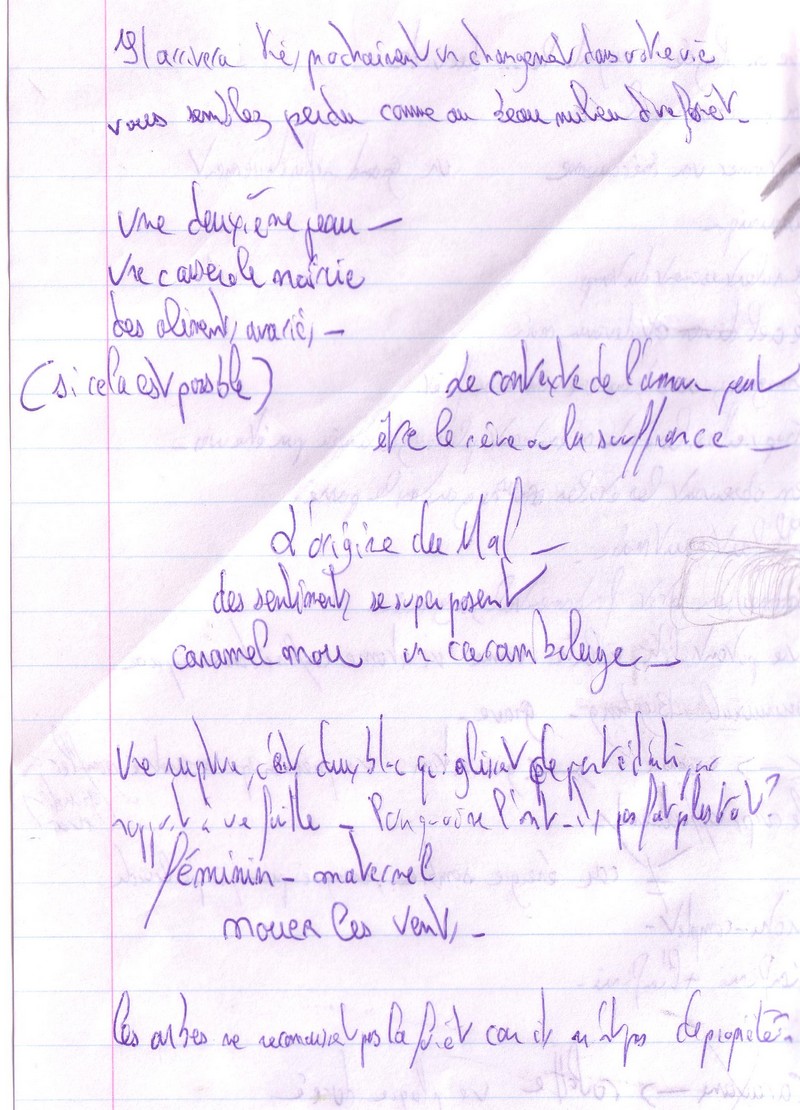 Il arrivera très prochainement un changement dans votre vie
vous semblez perdu comme au beau milieu d'une forêt -
une deuxième peau -
une casserole noircie
des aliments avariés -
(si cela est possible)
Le contexte de l'amour peut
être le rêve ou la souffrance -
L'origine du Mal -
des sentiments se superposent
caramel mou un carambolage -
une rupture, c'est deux blocs qui glissent de part et d'autre par
rapport à une faille - Pourquoi ne l'ont-ils pas fait plus tôt ?
féminin - maternel
nouer les vents -
les arbres ne reconnaissent pas la forêt car il n'est pas de propriété -